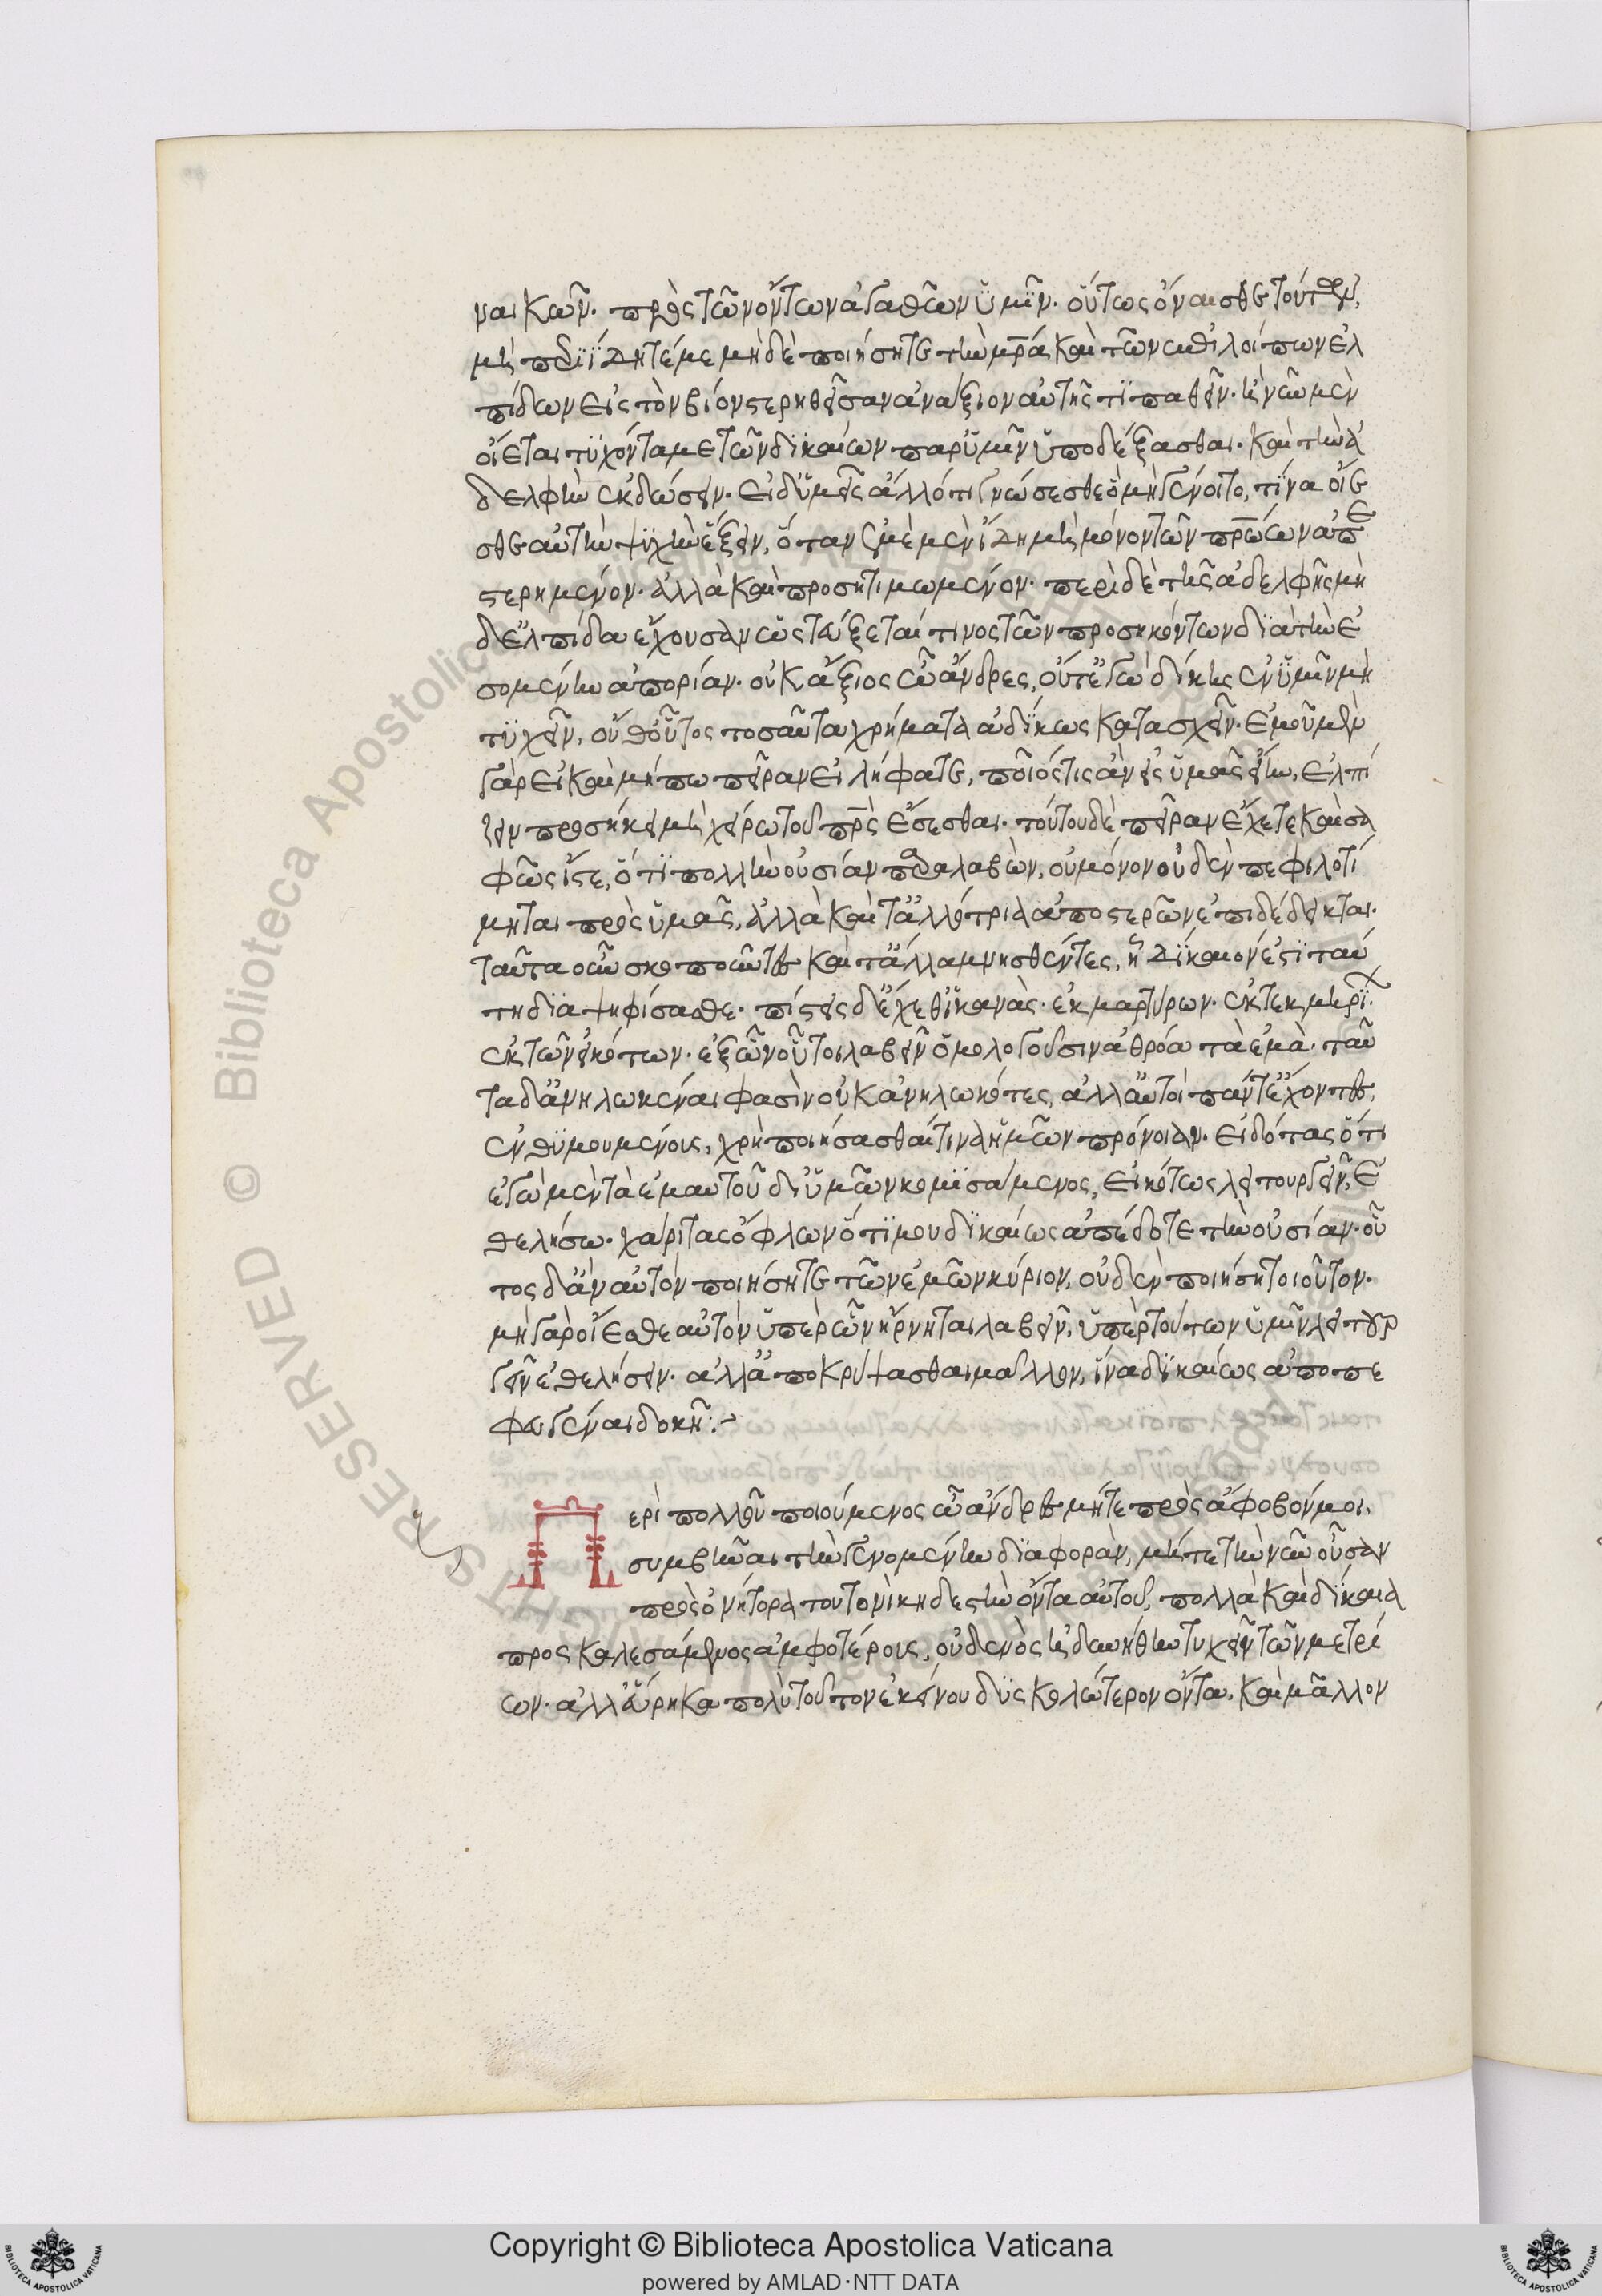 ναικῶν. πρὸς τῶν ὄντων ἀγαθῶν ὑμῖν. οὕτως ὄναισθε τούτων,
μὴ περιΐδητέ με μηδὲ ποιήσητε τὴν μρ̄α καὶ τῶν ἐπιλοίπων ἐλ
πίδων εἰς τὸν βίον στερηθεῖσαν ἀνάξιον αὐτῆς τὶ παθεῖν. ἣ νῦν μὲν
οἴεται τυχόντα με τῶν δικαίων παρ' ὑμῖν ὑποδέξασθαι. καὶ τὴν ἀ
δελφὴν ἐκδώσειν. εἰ δ' ὑμεῖς ἄλλό τι γνώσεσθε ὃ μὴ γένοιτο, τίνα οἴε
σθε αὐτὴν ψυχὴν ἕξειν, ὅταν ἐμὲ μὲν ἴδῃ μὴ μόνον τῶν πρώων ἀπε
στερημένον. ἀλλὰ καὶ προσητιμωμένον. περὶ δὲ τῆς ἀδελφῆς μη
δ' ἐλπίδα ἔχουσαν ὡς τεύξεταί τινος τῶν προσηκόντων διὰ τὴν ἐ
σομένην ἀπορίαν. οὐκ ἄξιος ὦ ἄνδρες, οὔτ' ἐγὼ δίκης ἐν ὑμῖν μὴ
τυχεῖν, οὔθ' οὗτος τοσαῦτα χρήματα ἀδίκως κατασχεῖν. ἐμοῦ μὲν
γὰρ εἰ καὶ μήπω πεῖραν εἰλήφατε, ποῖός τις ἂν εἰς ὑμᾶς εἴην, ἐλπί
ζειν προσήκει μὴ χείρω τοῦ πρς̄ ἔσεσθαι. τούτου δὲ πεῖραν ἔχετε καὶ σα
φῶς ἴστε, ὅτι πολλὴν οὐσίαν παραλαβὼν, οὐ μόνον οὐδὲν πεφιλοτί
μηται πρὸς ὑμᾶς, ἀλλὰ καὶ τἀλλότρια ἀποστερῶν ἐπιδέδεικται.
ταῦτα οὖν σκοποῦντες καὶ τἄλλα μνησθέντες, ᾗ δίκαιόν ἐστι ταύ
τῃ διαψηφίσασθε. πίστεις δ' ἔχεθ' ἱκανὰς. ἐκ μαρτύρων. ἐκ τεκμηρί.
ἐκ τῶν εἰκότων. ἐξ ὧν οὗτοι λαβεῖν ὁμολογοῦσιν ἀθρόα τὰ ἐμὰ. ταῦ
τα δ' ἀνηλωκέναι φασὶν οὐκ ἀνηλωκότες, ἀλλ' αὐτοὶ πάντ' ἔχοντες,
ἐνθυμουμένους, χρὴ ποιήσασθαί τινα ἡμῶν πρόνοιαν. εἰδότας ὅτι
ἐγὼ μὲν τὰ ἐμαυτοῦ δι' ὑμῶν κομισάμενος, εἰκότως λειτουργεῖν, ἐ
θελήσω. χάριτας ὀφλων ὅτι μου δικαίως ἀπέδοτε τὴν οὐσίαν. οὗ
τος δ' ἂν αὐτὸν ποιήσητε τῶν ἐμῶν κύριον, οὐδὲν ποιήσῃ τοιοῦτον.
μὴ γὰρ οἴεσθε αὐτὸν ὑπὲρ ὧν ἤρνηται λαβεῖν, ὑπὲρ τούτων ὑμῖν λειτουρ
γεῖν ἐθελήσειν. ἀλλ' ἀποκρύψασθαι μᾶλλον, ἵνα δικαίως ἀποπε
φευγέναι δοκῇ:~
Περὶ πολλοῦ ποιούμενος ὦ ἄνδρες μήτε πρὸς ἄφοβόν μοι.
συμβῆναι τὴν γενομένην διαφορὰν, μήτε τὴν νῦν οὖσαν
πρὸς ὀνήτορα τουτονὶ κηδεστὴν ὄντα αὐτοῦ, πολλὰ καὶ δίκαια
προσκαλεσάμενος ἀμφοτέρους, οὐδενὸς ἠδυνήθην τυχεῖν τῶν μετρί
ων. ἀλλ' εὕρηκα πολὺ τοῦτον ἐκείνου δυσκολώτερον ὄντα. καὶ μᾶλλον
Copyright © Biblioteca Apostolica Vaticana
powered by AMLAD·NTT DATA